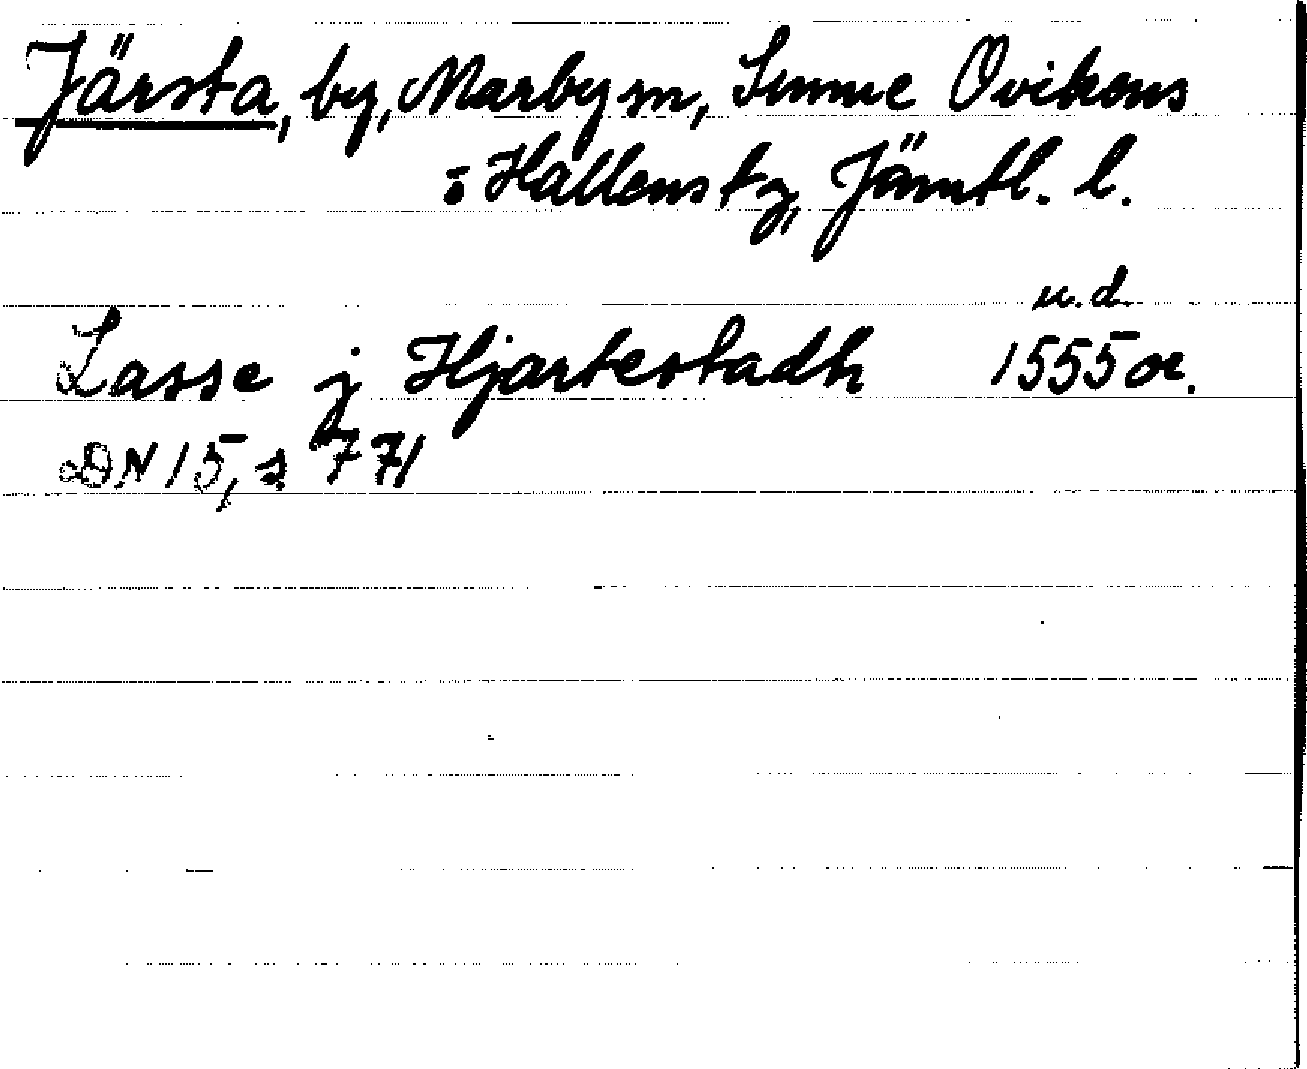 Järsta, by, Marby sn, Sunne Ovikens
o Hallens tg, Jämtl. l.
u.d.
Lasse j Hjartestadh 1555 or.
DN 15, s 771